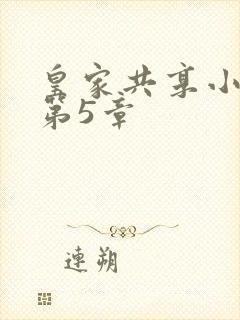 皇家共享小
第5章
连朔